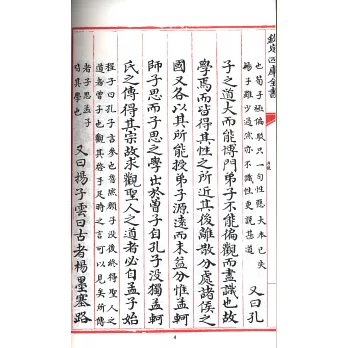 欽定四庫全書
也荀子極偏駁只一句性惡大本已失
揚子雖少過然亦不識性更說甚道
又曰孔
子之道大而能博門弟子不能徧觀而盡識也故
學焉而皆得其性之所近其後離散分處諸侯之
國又各以其所能授弟子源遠而末益分惟孟軻
師子思而子思之學出於曾子自孔子沒獨孟軻
氏之傳得其宗故求觀聖人之道者必自孟子始
程子曰孔子言參也魯然顏子沒後終得聖人之
道者曾子也觀其啟手足時之言可以見矣所傳
者子思孟子
皆其學也
又曰揚子雲曰古者楊墨塞路
4